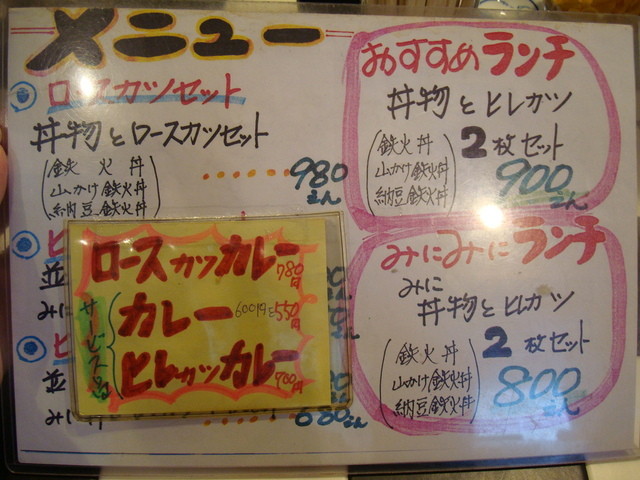 メニュー
ロースカツセット
丼物とロースカツセット
鉄火丼
山かけ鉄火丼
納豆鉄火丼
980
えん
ヒ
並
みに
ヒ
並
みに
680えん
ロースカツカレー
780円
サービス品
カレー
600円を550円
ヒレカツカレー
700円
おすすめランチ
丼物とヒレカツ
2枚セット
鉄火丼
山かけ鉄火丼
納豆鉄火丼
900
えん
みにみにランチ
みに
丼物とヒレカツ
2枚セット
鉄火丼
山かけ鉄火丼
納豆鉄火丼
800
えん